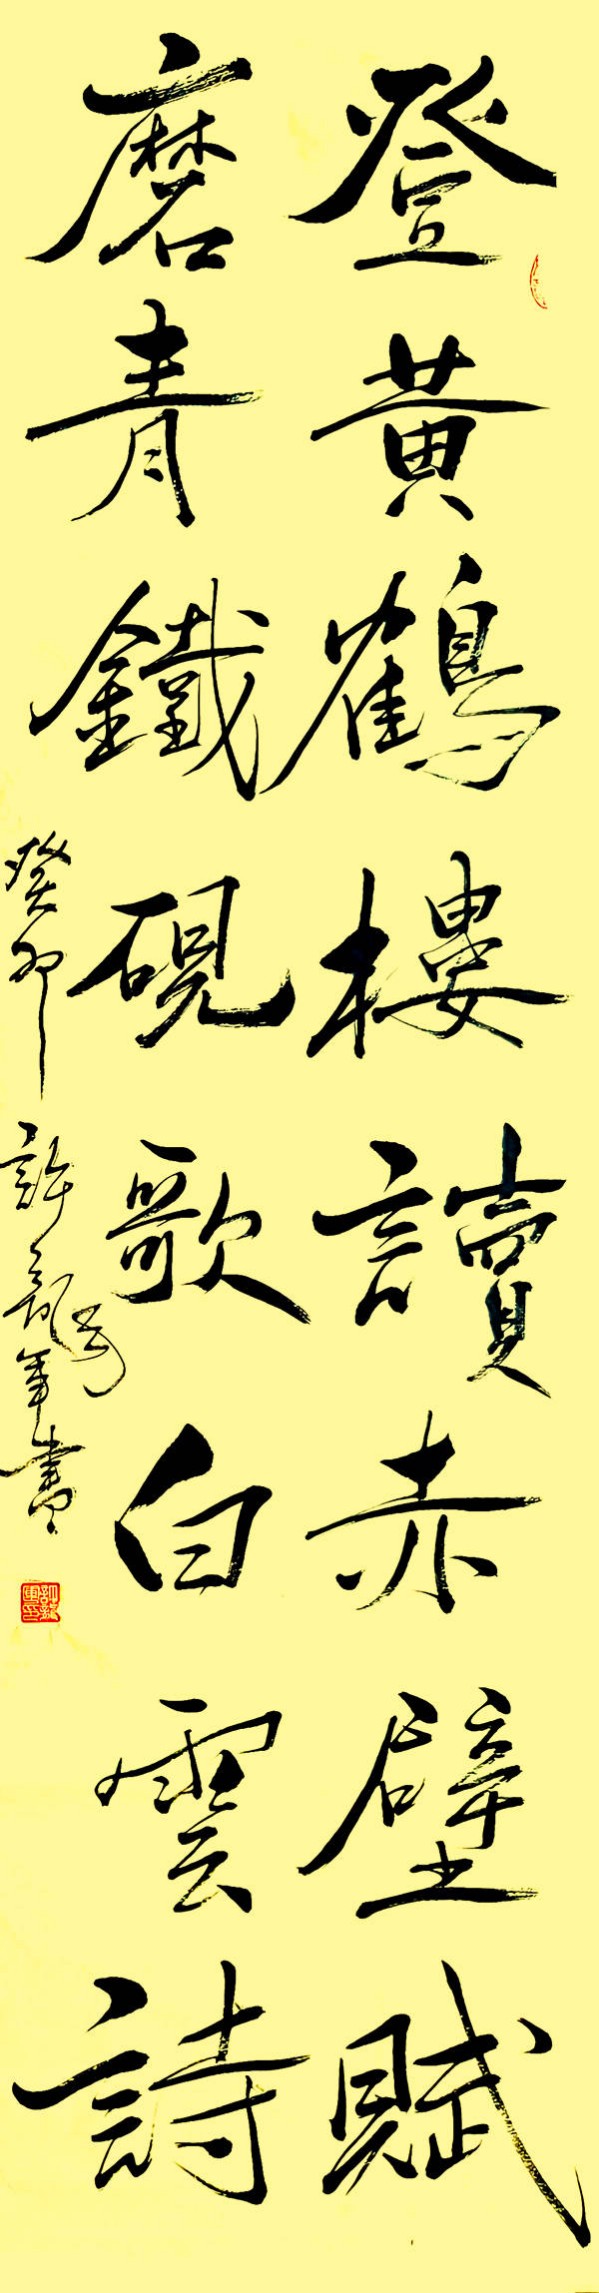 登黃鶴樓讀赤壁賦
磨青鐵硯歌白雲詩
癸卯許龍秀年書